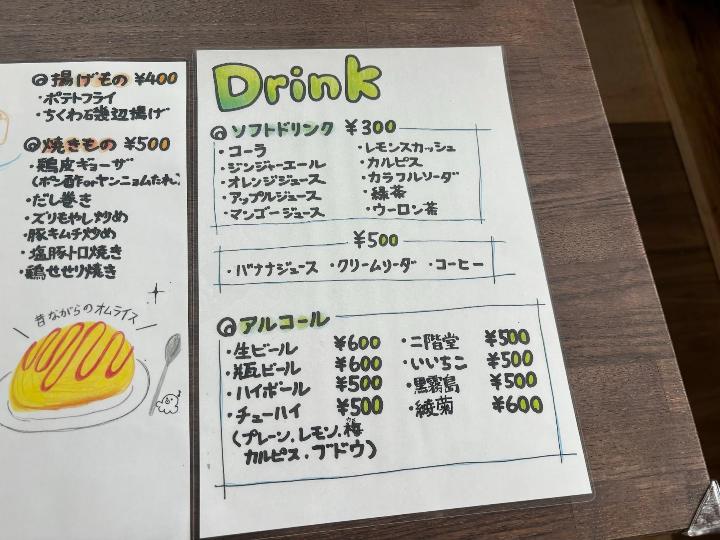 ◎揚げもの ¥400
・ポテトフライ
・ちくわ磯辺揚げ
◎焼きもの ¥500
・鶏皮ギョーザ
(ポン酢orヤンニョムたれ)
・だし巻き
・ズリもやし炒め
・豚キムチ炒め
・塩豚トロ焼き
・鶏せせり焼き
昔ながらのオムライス
Drink
◎ソフトドリンク ¥300
・コーラ
・ジンジャーエール
・オレンジジュース
・アップルジュース
・マンゴージュース
・レモンスカッシュ
・カルピス
・カラフルソーダ
・緑茶
・ウーロン茶
¥500
・バナナジュース ・クリームソーダ ・コーヒー
◎アルコール
・生ビール ¥600
・瓶ビール ¥600
・ハイボール ¥500
・チューハイ ¥500
(プレーン、レモン、梅
カルピス、ブドウ)
・二階堂 ¥500
・いいちこ ¥500
・黒霧島 ¥500
・綾菊 ¥600